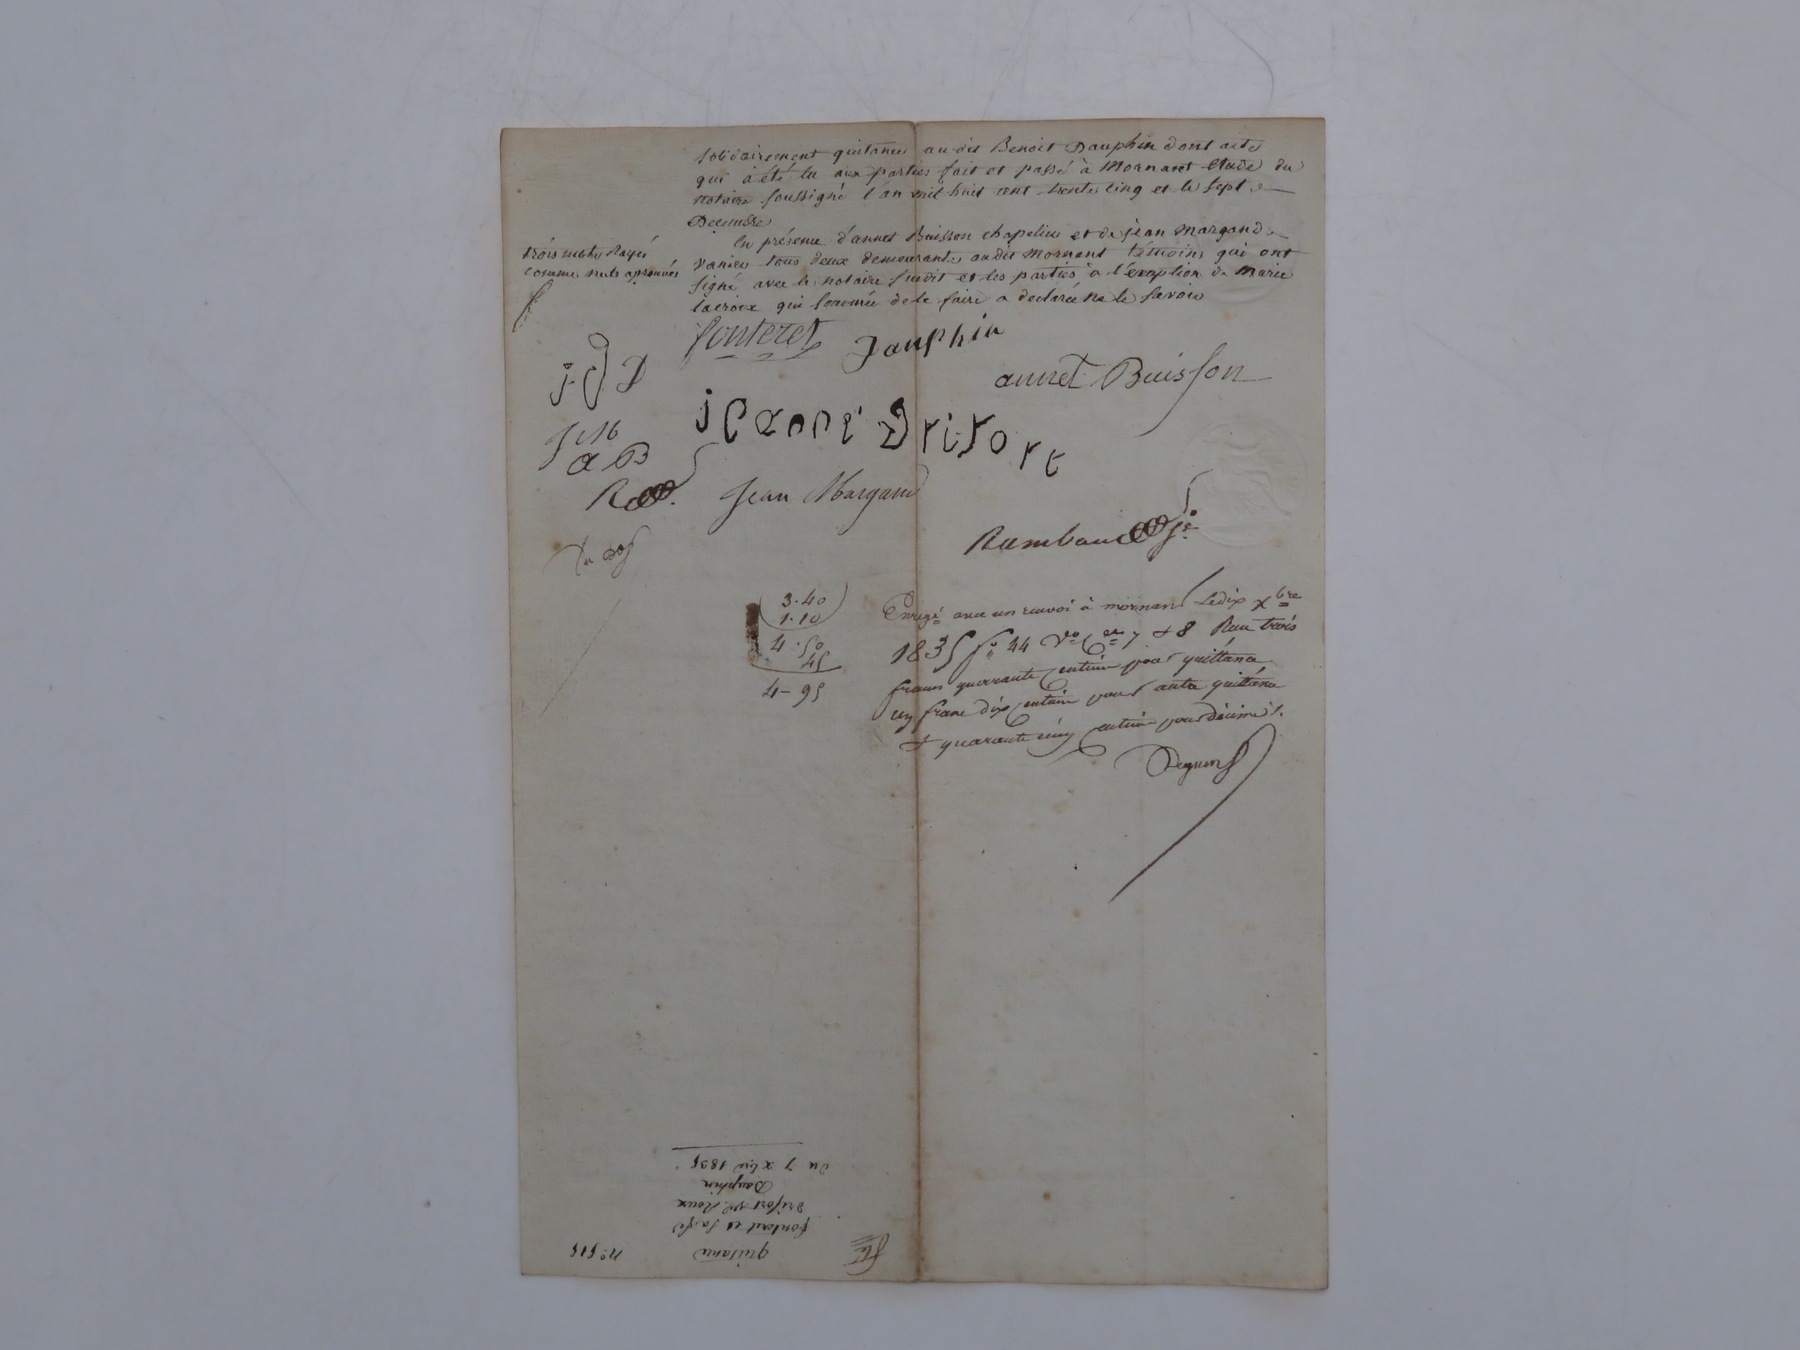 solidairement quitance au dit Benoit Dauphin dont acte
qui a été lu aux parties fait et passé à Mornant Etude du
notaire soussigné l'an mil huit cent trente cinq et le sept
Decembre
En présence d'annet Buisson chapelier et de jean Margand
vanier tous deux demeurants audit Mornant témoins qui ont
signé avec le notaire susdit et les parties à l'éxeption de Marie
lacroix qui de le faire a declaré ne le savoir
trois mots Rayés
comme nuls aprouvés
fonteret Dauphin
annet Buisson
jeanne Drifort
j D
a B
Jean Margand
3.40
1.10
4.50
45
4-95
avec un renvoi à mornant Le dix Xbre
1835 fo 44 Vo 7 & 8 Reçu trois
francs quarante centimes pour quittance
un franc dix centimes pour autre quittance
& quarante cinq centimes pour décimes.
no 515
quitance
fonteret et
drifort Roux
Dauphin
du 7 xbre 1835